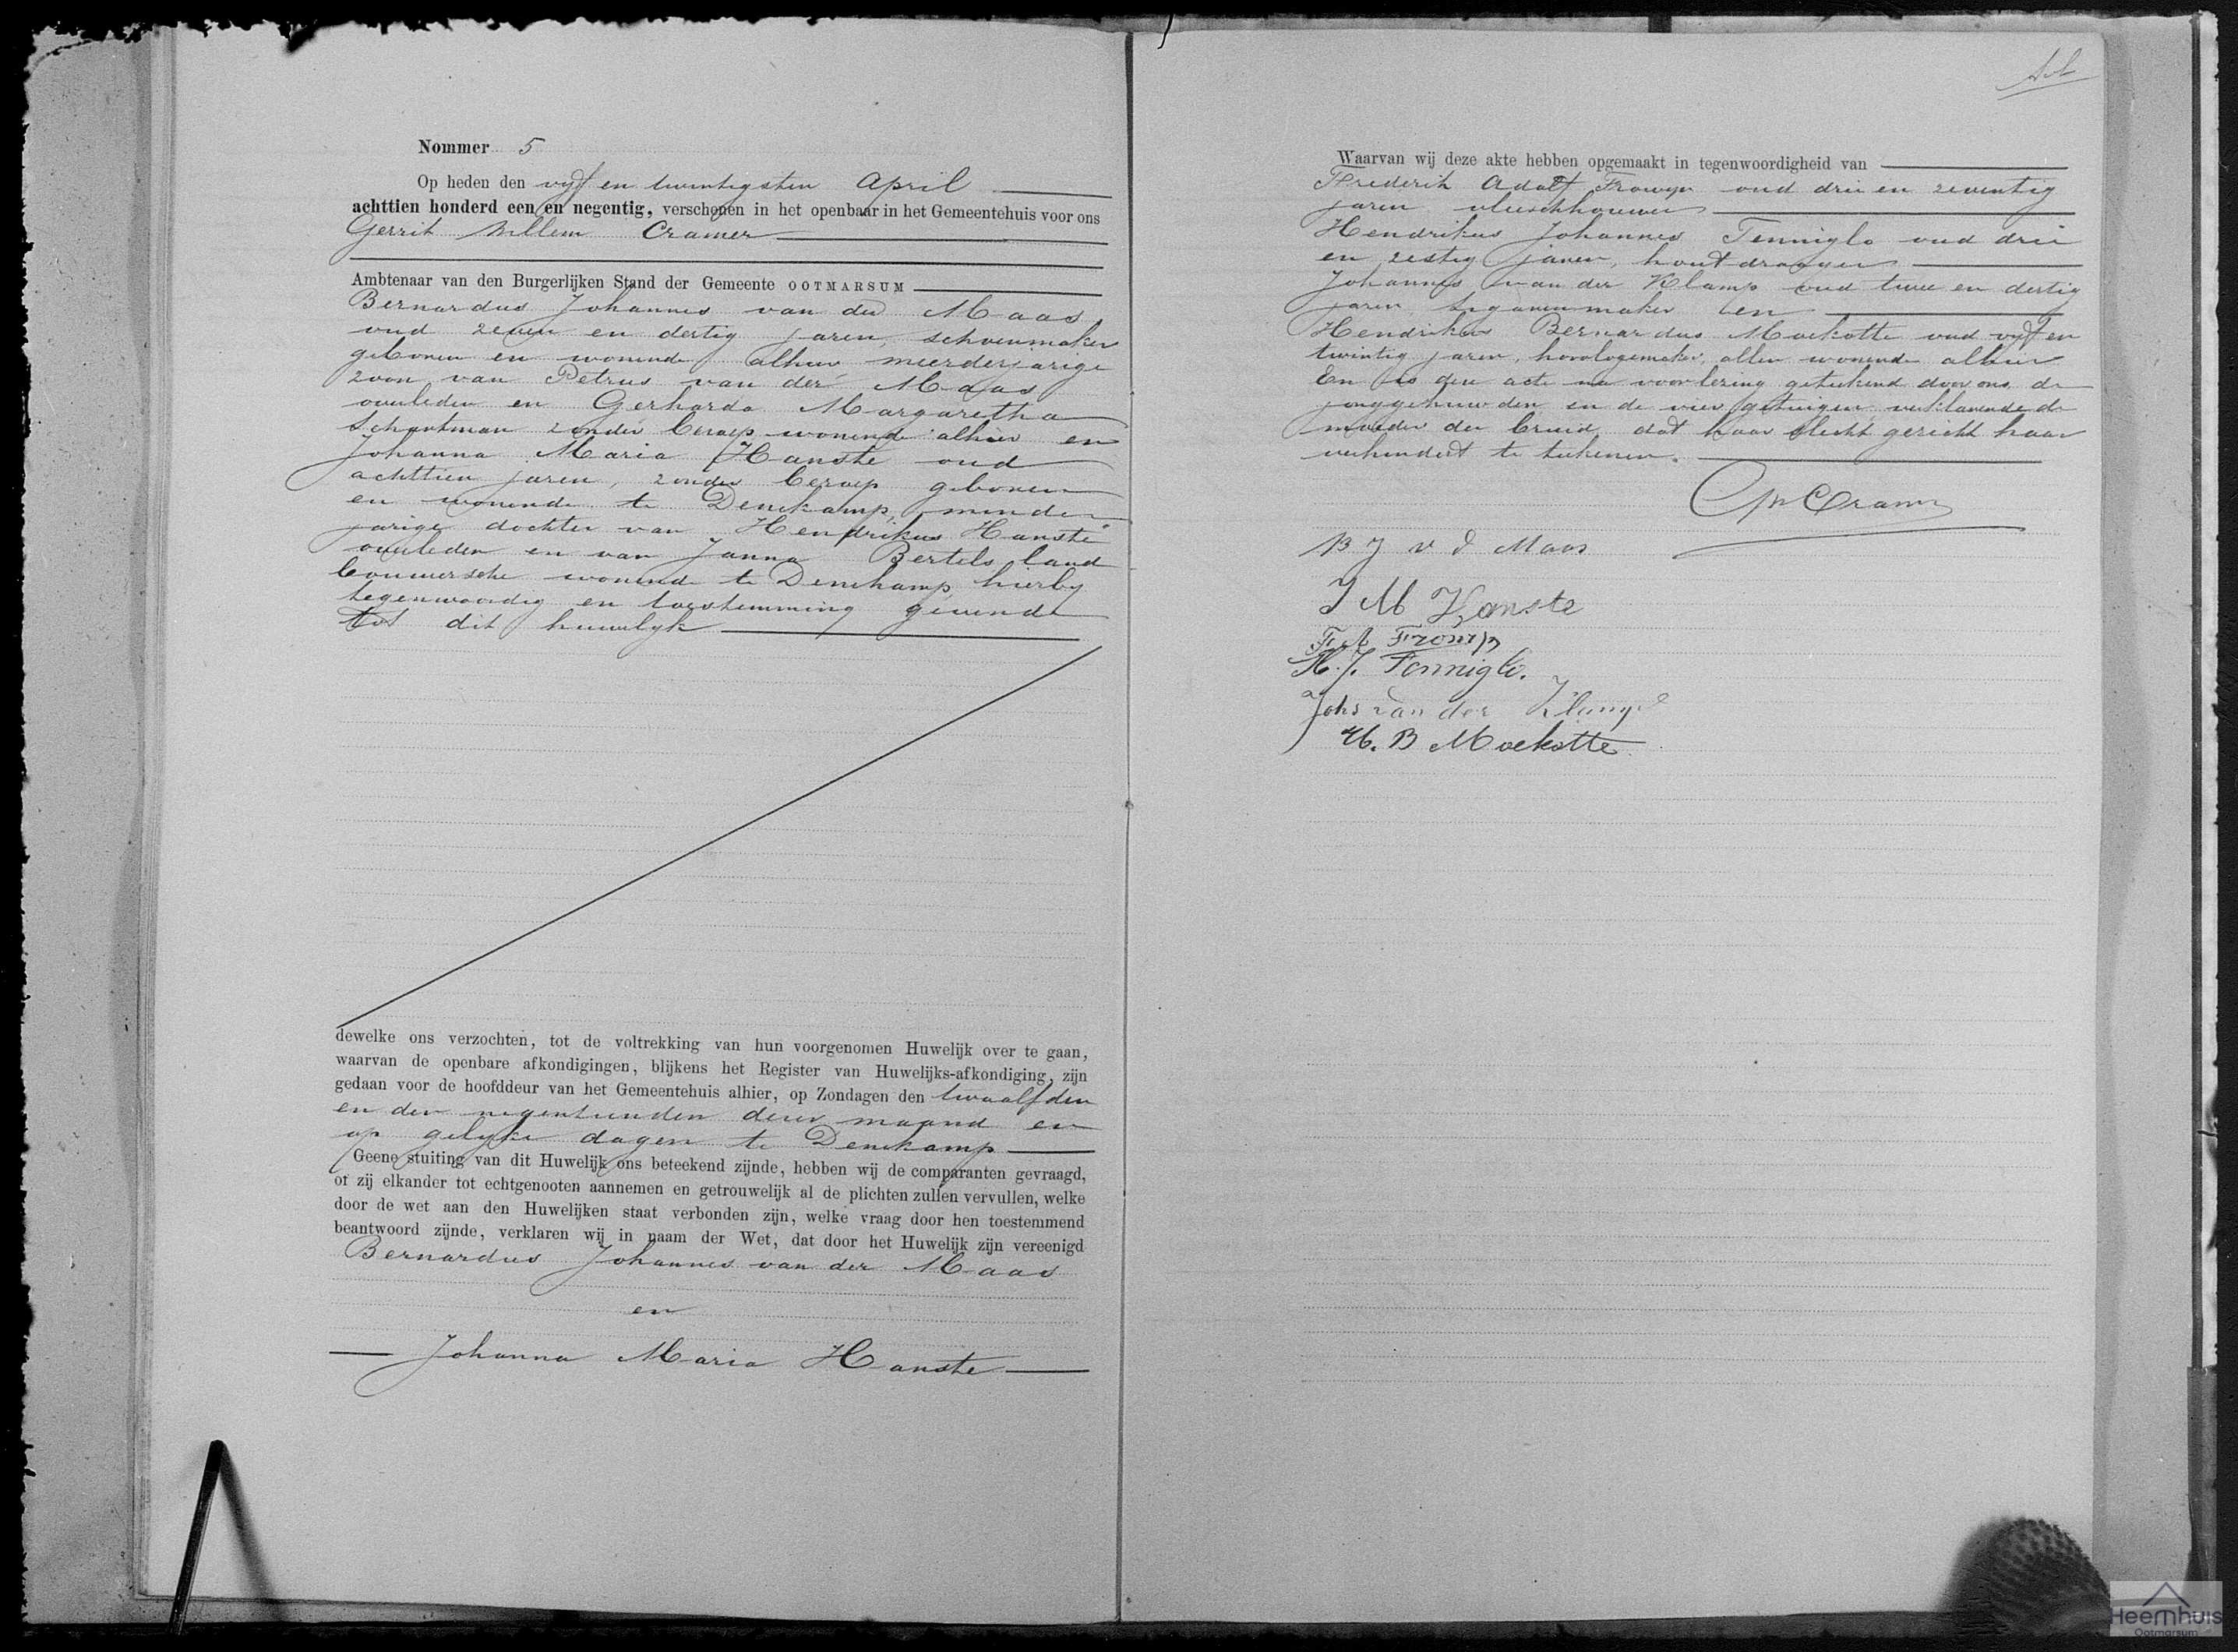 Nommer 5
Op heden den vijf en twintigsten April
achttien honderd een en negentig, verschenen in het openbaar in het Gemeentehuis voor ons
Gerrit Willem Cramer
Ambtenaar van den Burgerlijken Stand der Gemeente OOTMARSUM
Bernardus Johannes van der Maas
oud zeven en dertig jaren, schoenmaker
geboren en wonende alhier meerderjarige
zoon van Petrus van der Maas
overleden en Gerharda Margaretha
Schartman zonder beroep wonende alhier en
Johanna Maria Hanste oud
achttien jaren, zonder beroep geboren
en wonende te Denekamp, minder
jarige dochter van Hendrikus Hanste
overleden en van Janna Bertels land
bouwersche wonende te Denekamp, hierbij
tegenwoordig en toestemming gevende
tot dit huwelijk
dewelke ons verzochten, tot de voltrekking van hun voorgenomen Huwelijk over te gaan,
waarvan de openbare afkondigingen, blijkens het Register van Huwelijks-afkondiging, zijn
gedaan voor de hoofddeur van het Gemeentehuis alhier, op Zondagen den twaalfden
en den negentienden dezer maand en
op gelijke dagen te Denekamp
Geene stuiting van dit Huwelijk ons beteekend zijnde, hebben wij de comparanten gevraagd,
of zij elkander tot echtgenooten aannemen en getrouwelijk al de plichten zullen vervullen, welke
door de wet aan den Huwelijken staat verbonden zijn, welke vraag door hen toestemmend
beantwoord zijnde, verklaren wij in naam der Wet, dat door het Huwelijk zijn vereenigd
Bernardus Johannes van der Maas
en
Johanna Maria Hanste
Waarvan wij deze akte hebben opgemaakt in tegenwoordigheid van
Frederik Adolf Frowijn oud drie en zeventig
jaren vleeschhouwer
Hendrikus Johannes Tenniglo oud drie
en zestig jaren, houtdraayer
Johannes van der Klamp oud twee en dertig
jaren sigarenmaker en
Hendrikus Bernardus Moekotte oud vijf en
twintig jaren, horologemaker, allen wonende alhier
En is deze acte na voorlezing geteekend door ons, de
jonggehuwden en de vier getuigen verklarende de
moeder der bruid, dat haar slecht gezicht haar
verhindert te teekenen.
GW Cramer
B J v d Maas
J M Hanste
F A Frowijn
H. J. Tenniglo.
Johs van der Klamp
H. B Moekotte
Heemhuis
Ootmarsum